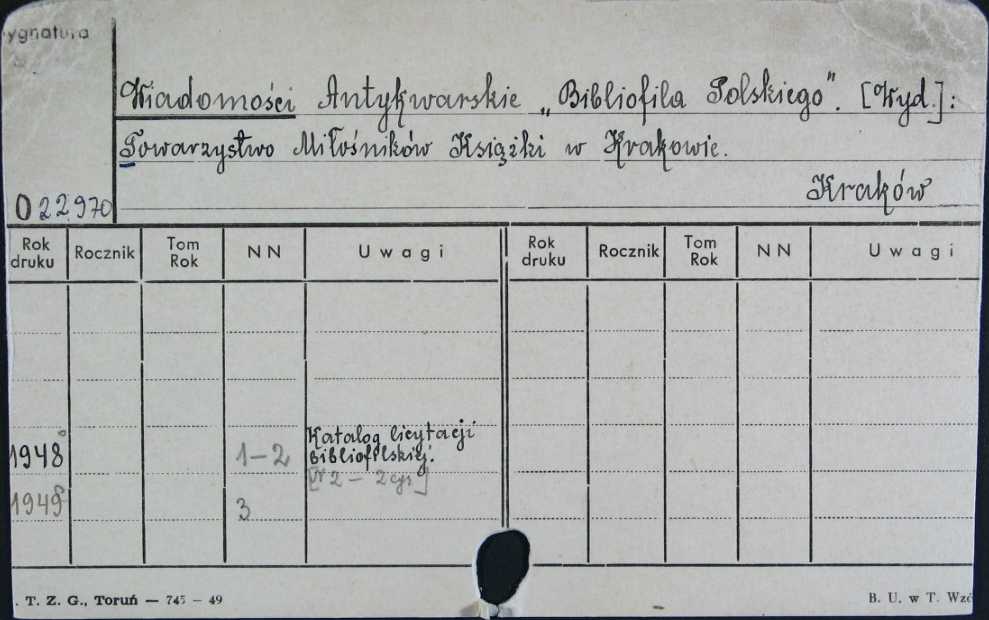 ygnatura
Wiadomości Antykwarskie „Bibliofila Polskiego". [Wyd.]:
Towarzystwo Miłośników Książki w Krakowie.
Kraków
022970
Rok druku Rocznik Tom Rok NN Uwagi Rok druku Rocznik Tom Rok NN Uwagi
Katalog licytacji
1948 1-2 bibliofilskiej.
[Nr 2 - 2 egz.]
1949 3
. T. Z. G., Toruń — 745 — 49 B. U. w T. Wzó